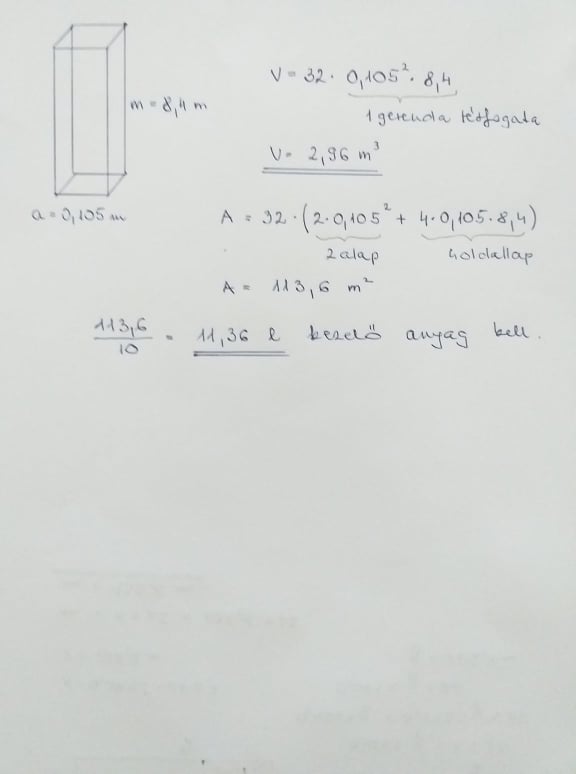 m = 8,4 m
a = 0,105 m
V = 32 · 0,105² · 8,4
1 gerenda térfogata
V = 2,96 m³
A = 32 · (2·0,105² + 4·0,105·8,4)
2 alap 4 oldallap
A = 113,6 m²
113,6 / 10 = 11,36 l kezelő anyag kell.